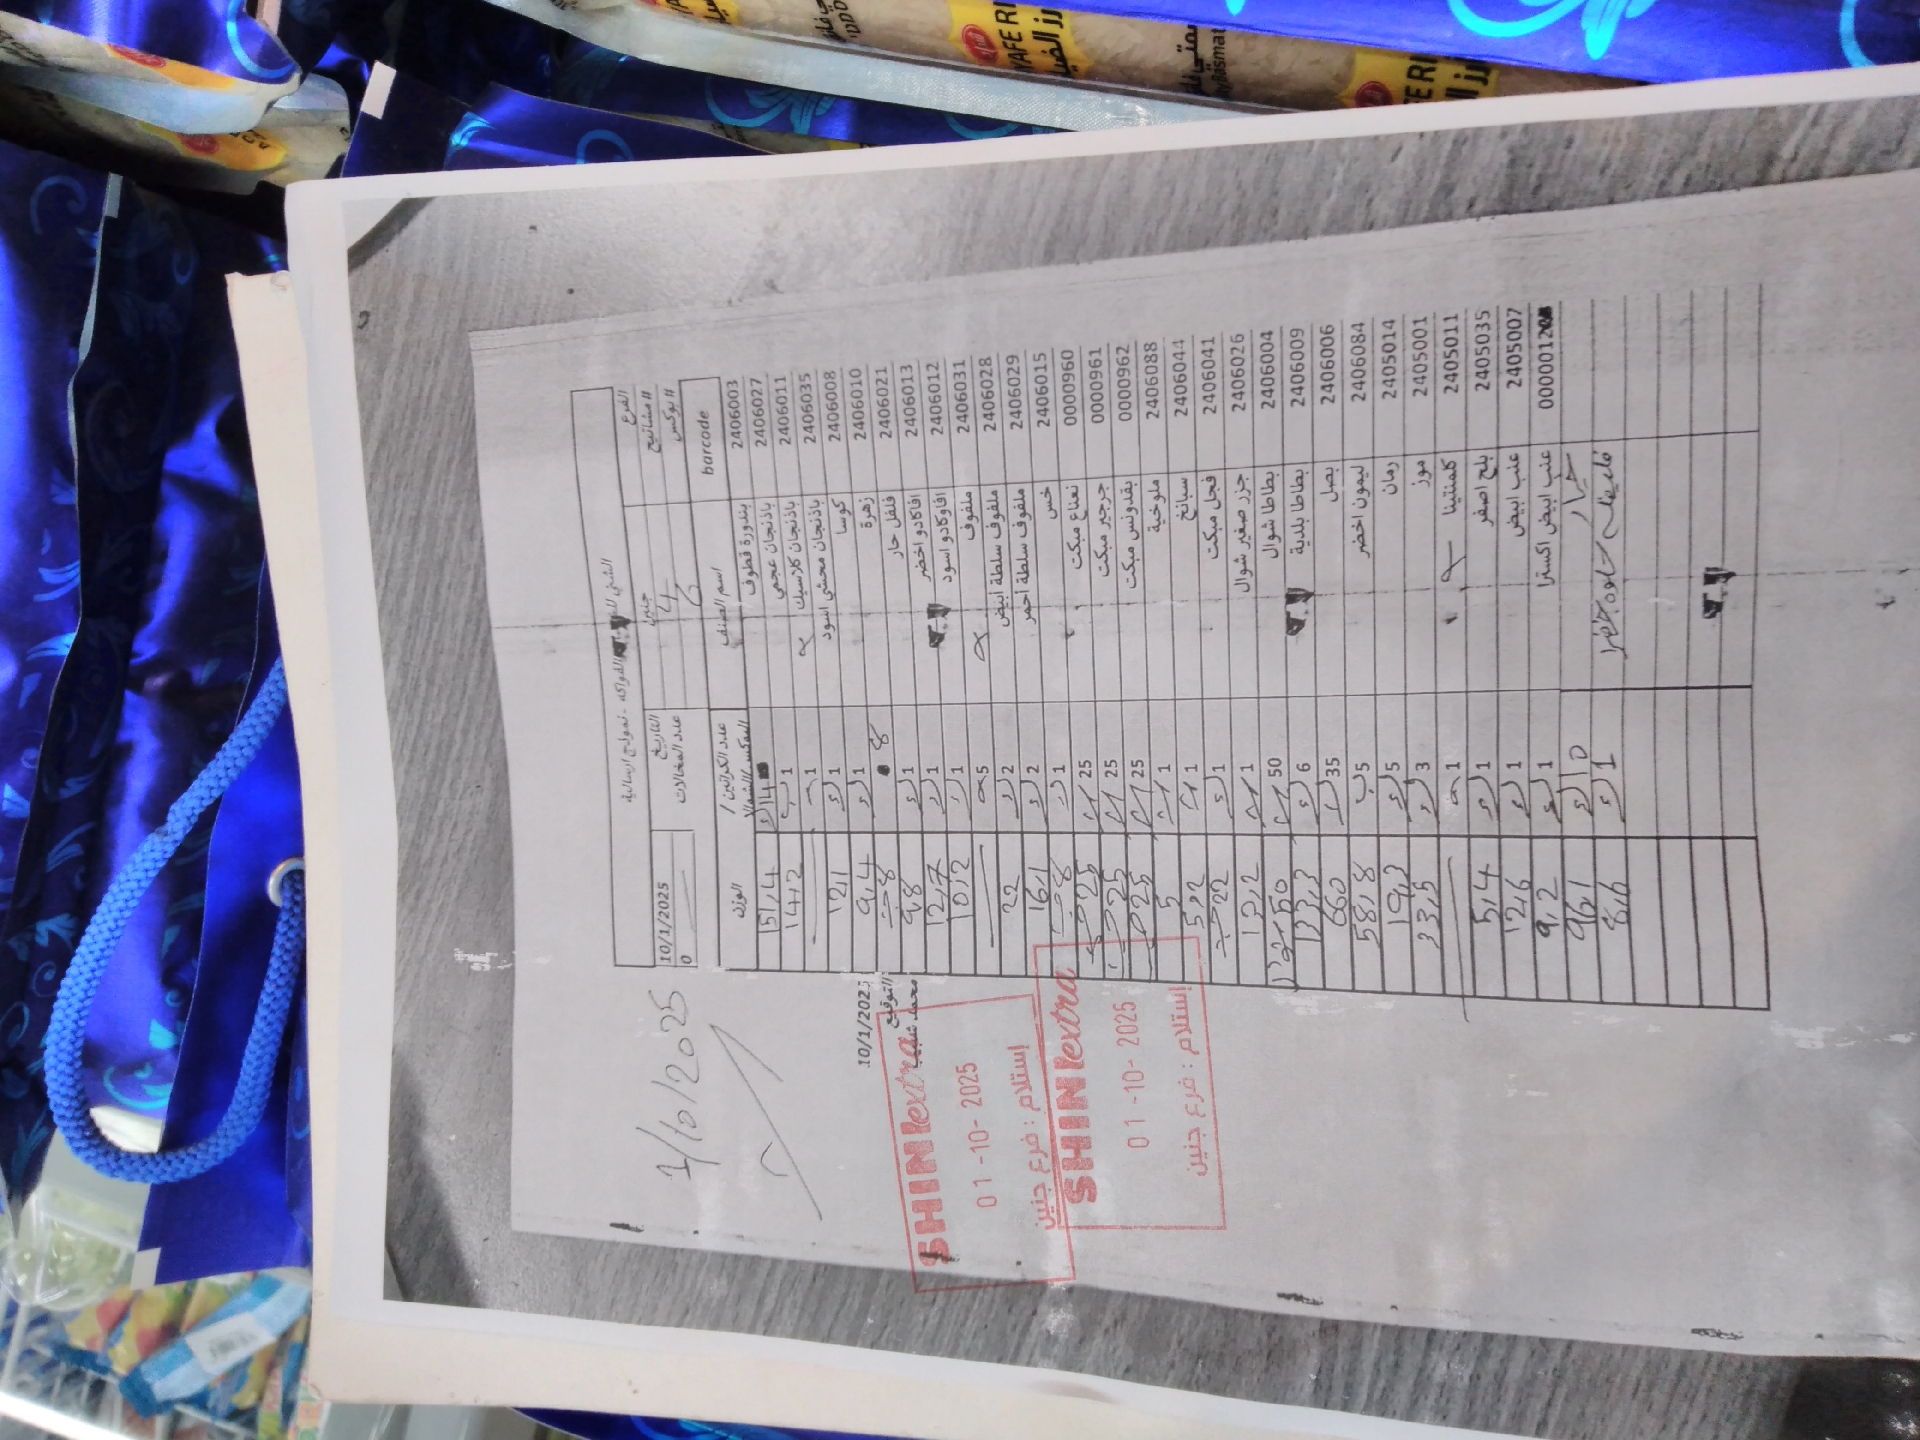 الفرع
# مشاتيح 4
# بوكس 6
جنين
التاريخ 10/1/2025
عدد المغالات 0
barcode اسم الصنف عدد الكراتين / الوزن
2406003 بندورة قطوف 14 151,4
2406027 باذنجان عجمي 1 14,2
2406011 باذنجان كلاسيك 1
2406035 باذنجان محشي اسود 1 12,1
2406008 كوسا 1 9,4
2406010 زهرة 8 8
2406021 فلفل حار 1 9,8
2406013 افاكادو اخضر 1 12,7
2406012 افاوكادو اسود 1 10,2
2406031 ملفوف 5
2406028 ملفوف سلطة ابيض 2 22
2406029 ملفوف سلطة احمر 2 16,1
2406015 خس 1 8
0000960 نعناع مبكت 25 25
0000961 جرجير مبكت 25 25
0000962 بقدونس مبكت 25 25
2406088 ملوخية 1 5
2406044 سبانخ 1 5,2
2406041 فجل مبكت 1 22
2406026 جزر صغير شوال 1 12,2
2406004 بطاطا شوال 50 50
2406009 بطاطا بلدية 6 133,3
2406006 بصل 35 660
2406084 ليمون اخضر 5 58,8
2405014 رمان 5 19,3
2405001 موز 3 33,5
2405011 كلمنتينا 1
2405035 بلح اصفر 1 5,4
2405007 عنب ابيض 1 12,6
عنب ابيض اكسترا 1 9,2
خيار 10 96,1
فليفلة حلوة خضرا 1 8,6
1/10/2025
10/1/2025
التوقيع
SHINI extra
01-10-2025
إستلام : فرع جنين
SHINI extra
01-10-2025
إستلام : فرع جنين